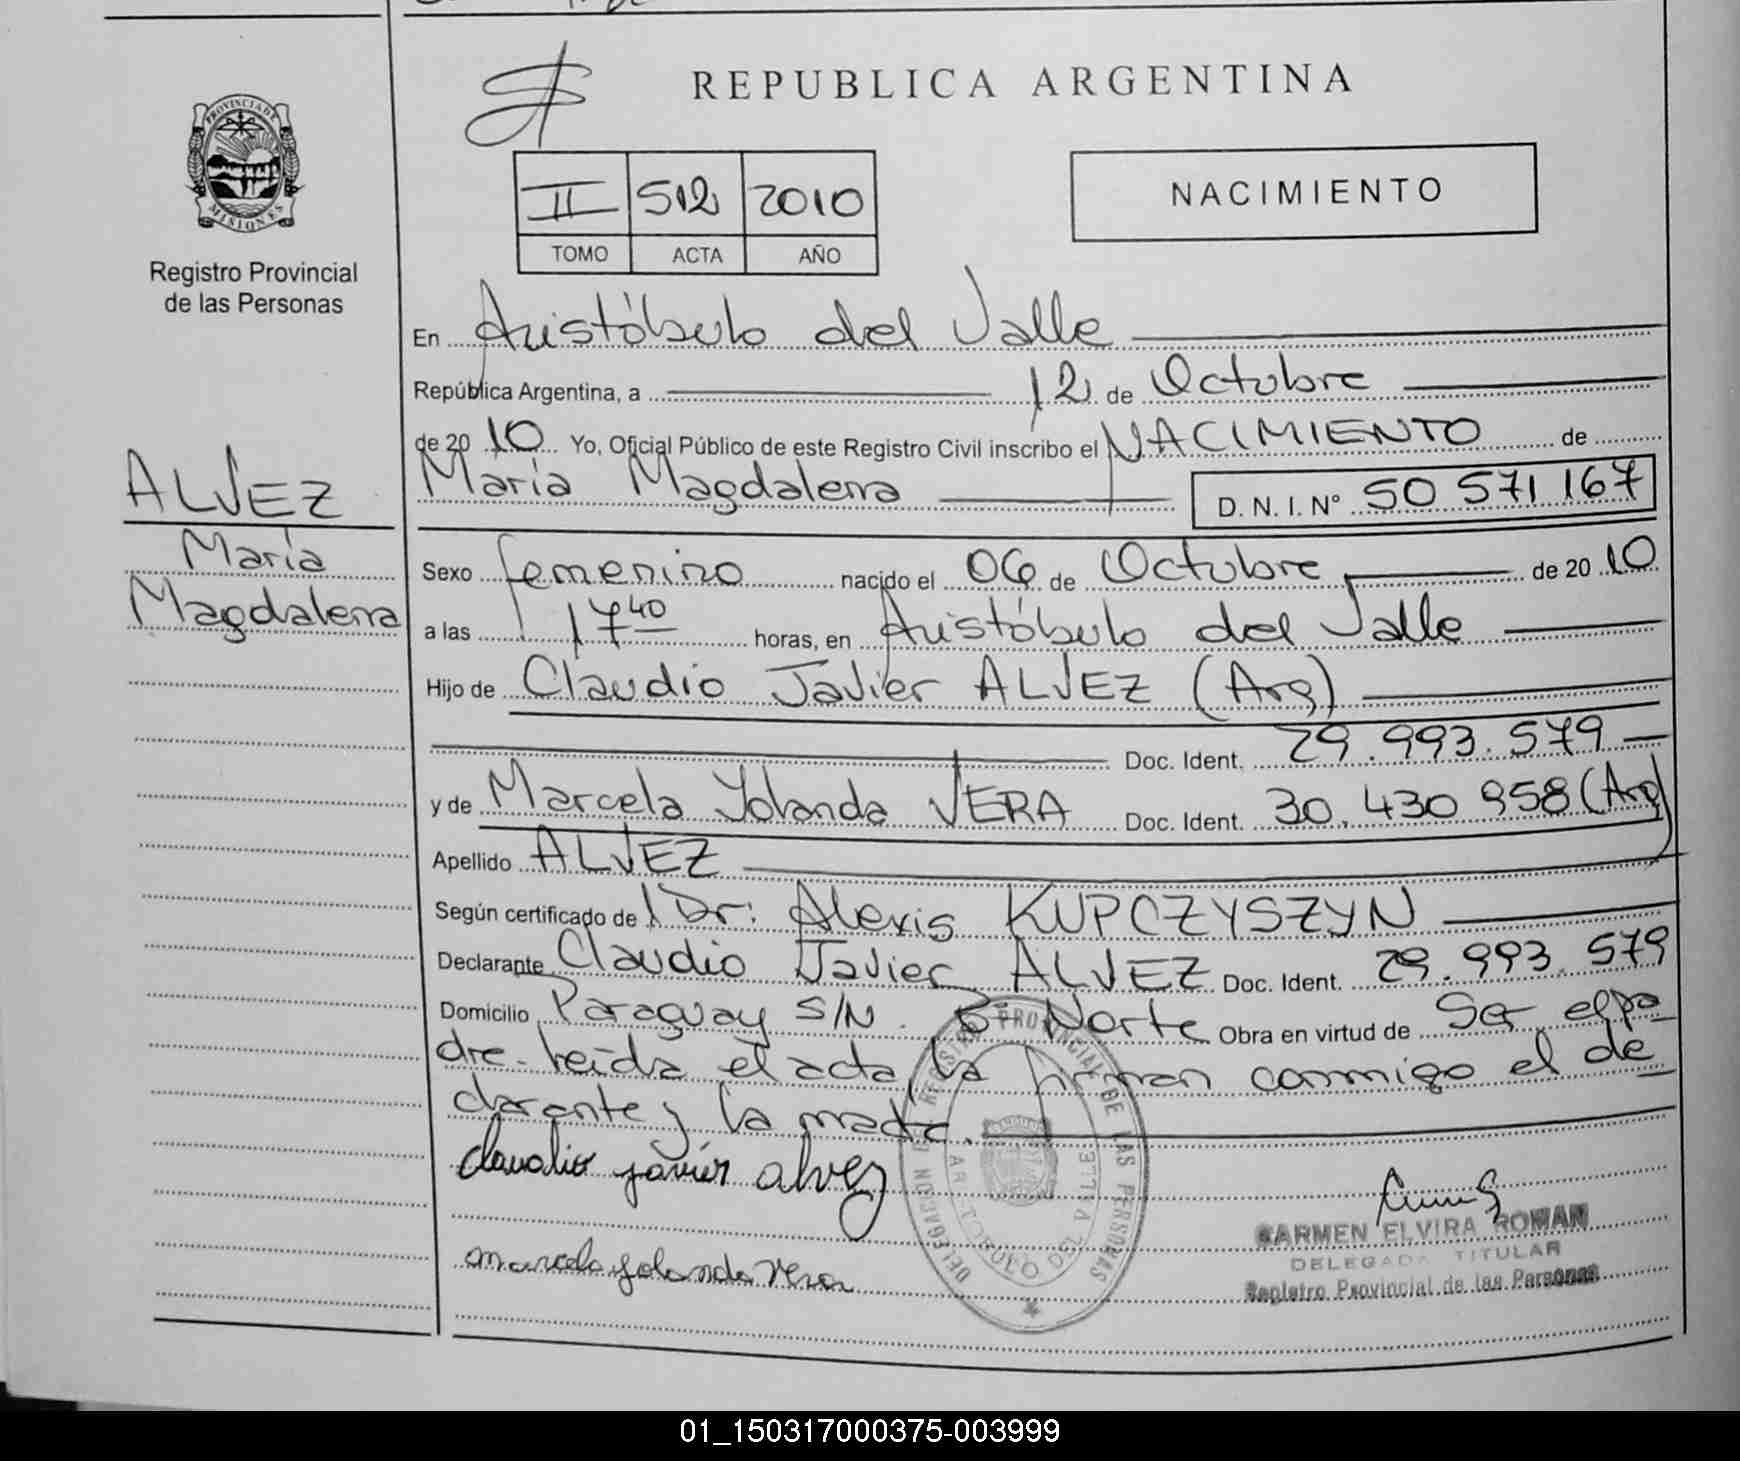 REPUBLICA ARGENTINA
PROVINCIA DE
MISIONES
Registro Provincial
de las Personas
II 512 2010
TOMO ACTA AÑO
NACIMIENTO
En Aristóbulo del Valle
República Argentina, a 12 de Octubre
de 20 10 Yo, Oficial Público de este Registro Civil inscribo el NACIMIENTO de
María Magdalena D. N. I. Nº 50 571 167
ALVEZ
María
Magdalena
Sexo femenino nacido el 06 de Octubre de 20 10
a las 17 40 horas, en Aristóbulo del Valle
Hijo de Claudio Javier ALVEZ (Arg)
Doc. Ident. 29.993.579
y de Marcela Yolanda VERA Doc. Ident. 30.430 958 (Arg)
Apellido ALVEZ
Según certificado de Dr: Alexis KUPCZYSZYN
Declarante Claudio Javier ALVEZ Doc. Ident. 29.993.579
Domicilio Paraguay S/N. Bº Norte Obra en virtud de Ser el pa
dre. leída el acta, la firman conmigo el de
clarante y la madre.
claudio javier alvez
marcela yolanda vera
DELEGACION DE REGISTRO PROVINCIAL DE LAS PERSONAS
ARISTOBULO DEL VALLE
CARMEN ELVIRA ROMAN
DELEGADA TITULAR
Registro Provincial de las Personas
01_150317000375-003999